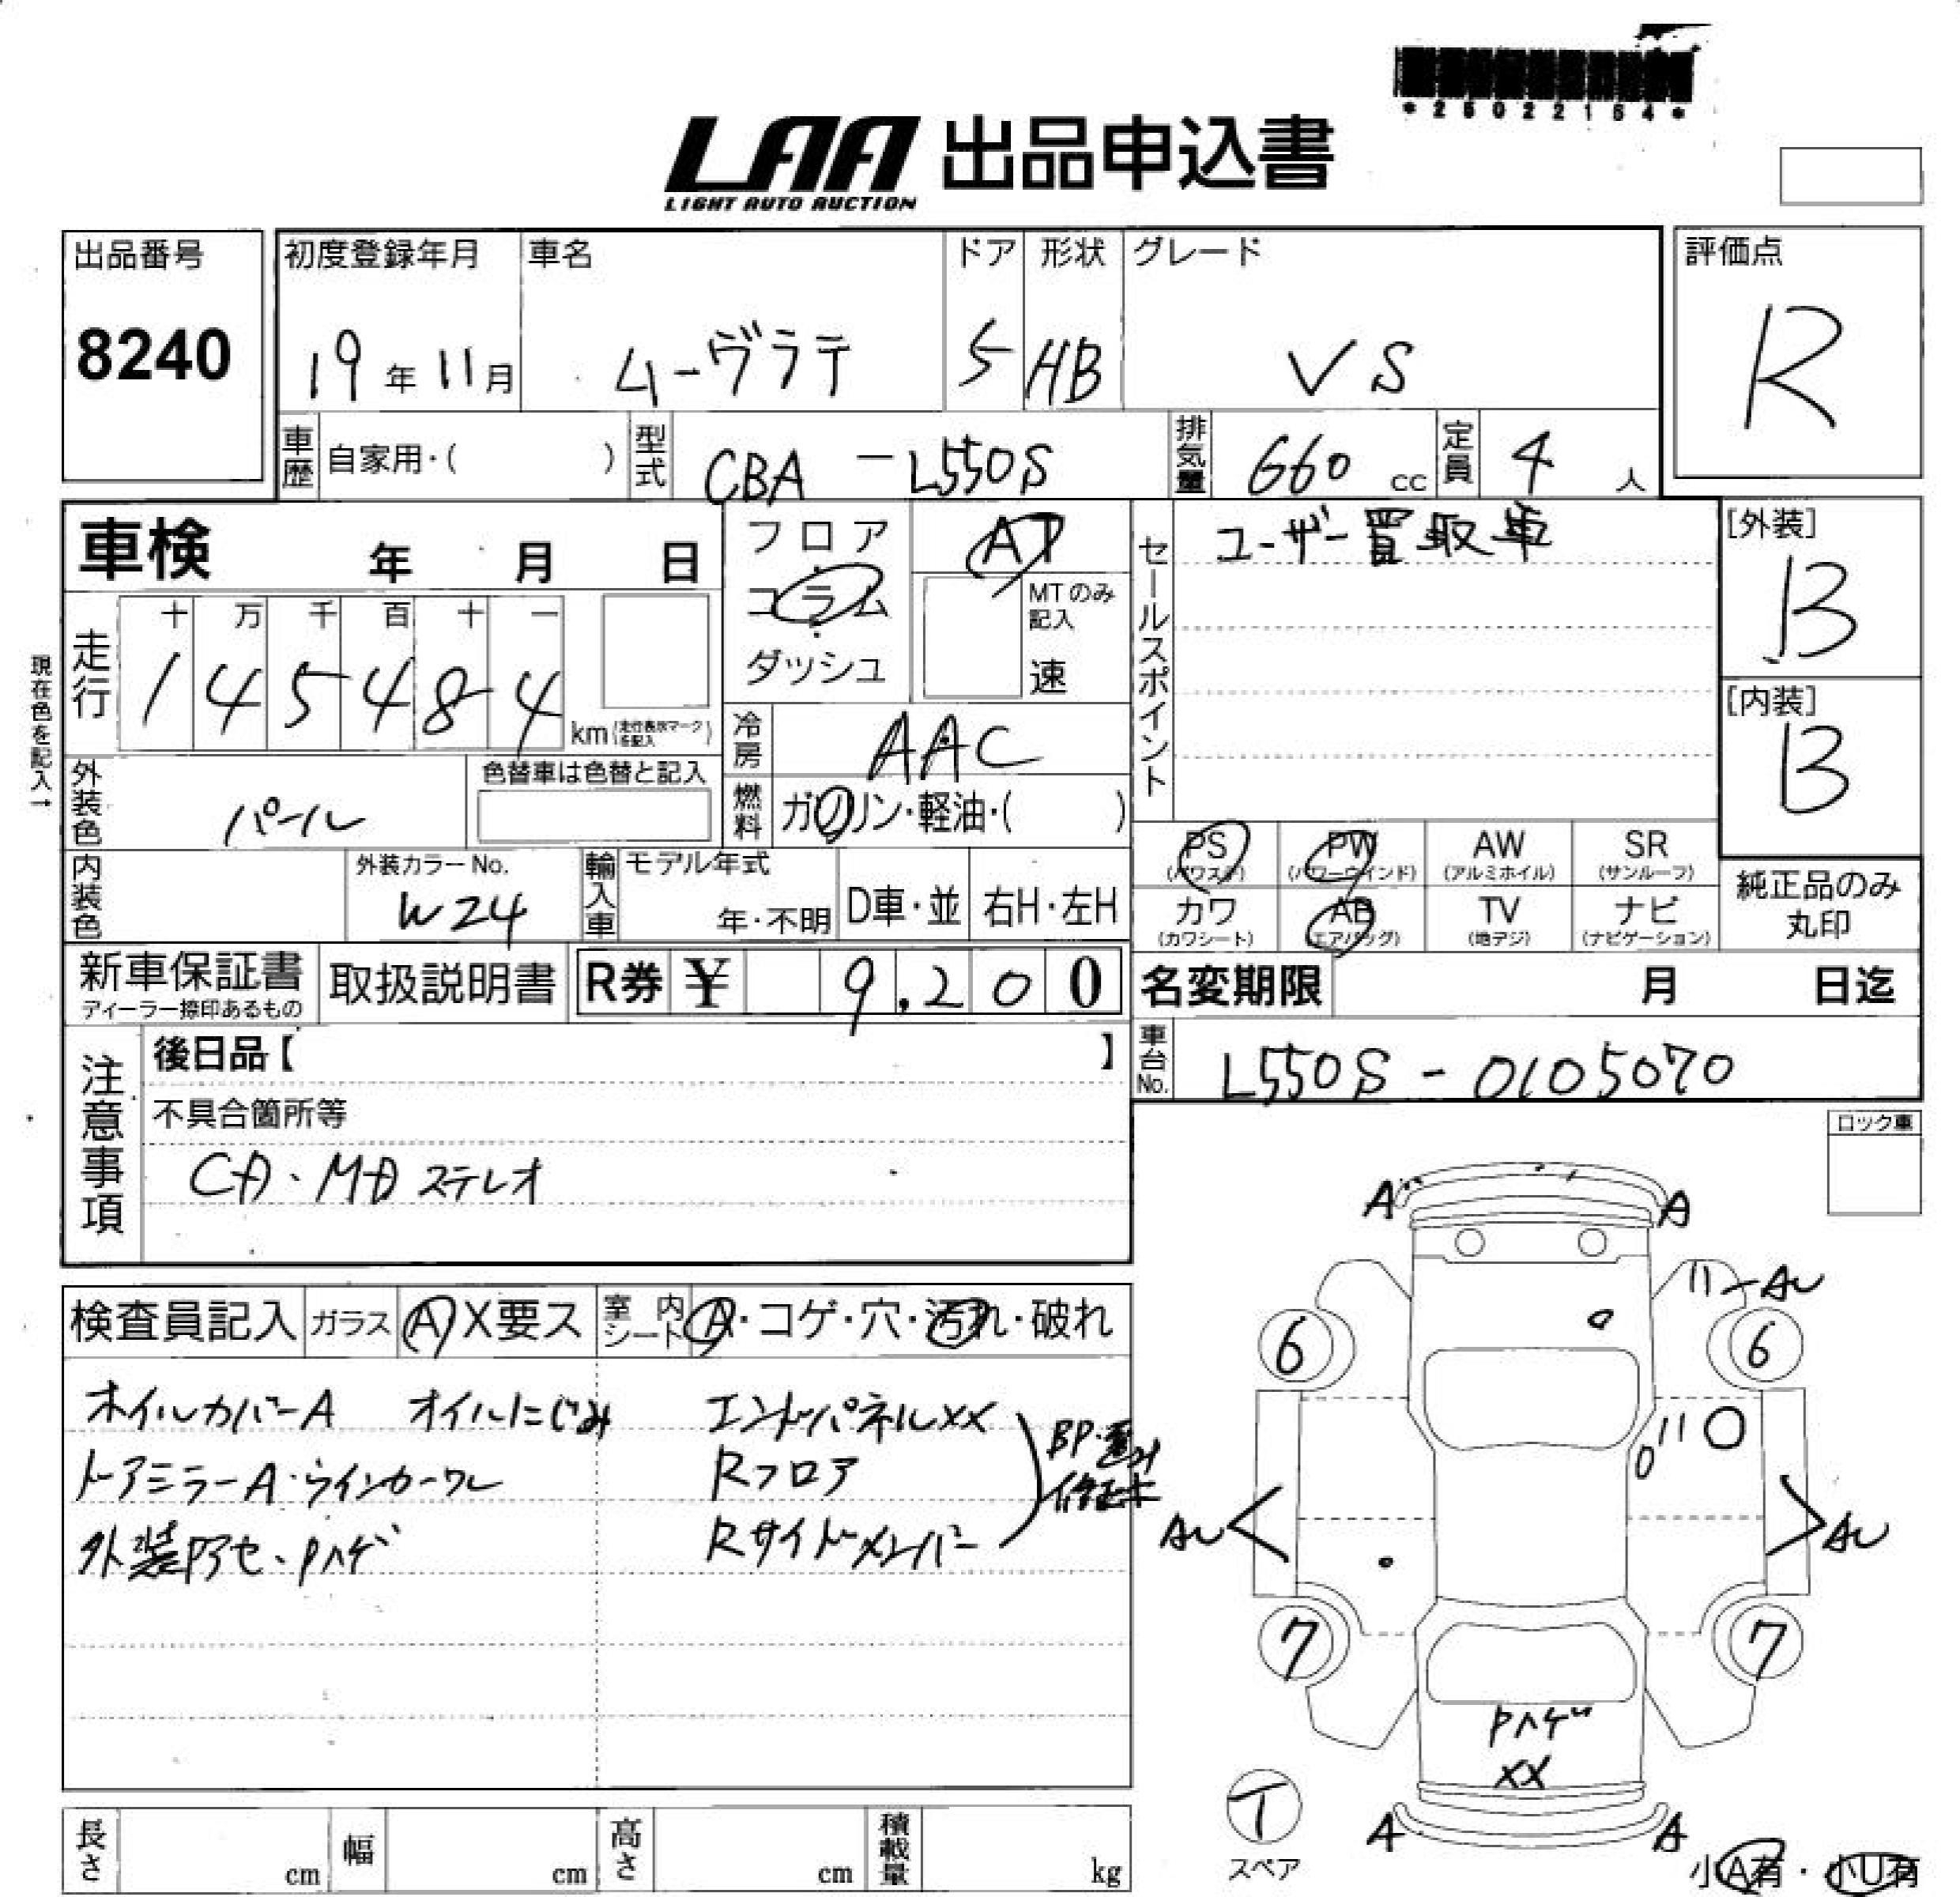 *26022154*
LAA 出品申込書
LIGHT AUTO AUCTION
出品番号
8240
初度登録年月
19年11月
車名
ムーヴラテ
ドア
5
形状
HB
グレード
VS
評価点
R
車歴
自家用・( )
型式
CBA-L550S
排気量
660 cc
定員
4 人
車検 年 月 日
フロア
コラム
ダッシュ
AT
MTのみ
記入
速
セールスポイント
ユーザー買取車
[外装]
B
[内装]
B
現在色を記入→
走行
十 万 千 百 十 一
1 4 5 4 8 4
km (走行表示マークを記入)
冷房
AAC
外装色
パール
色替車は色替と記入
燃料
ガソリン・軽油・( )
内装色
外装カラーNo.
W24
輸入車
モデル年式
年・不明
D車・並
右H・左H
PS
(パワステ)
PW
(パワーウインド)
AW
(アルミホイル)
SR
(サンルーフ)
カワ
(カワシート)
AB
(エアバッグ)
TV
(地デジ)
ナビ
(ナビゲーション)
純正品のみ
丸印
新車保証書
ディーラー捺印あるもの
取扱説明書
R券 ¥ 9,200
名変期限 月 日迄
車台No.
L550S-0105070
注意事項
後日品【 】
不具合箇所等
CD・MDステレオ
ロック車
検査員記入
ガラス
A X要ス
室内シート
A・コゲ・穴・汚れ・破れ
ホイルカバーA オイルにじみ エンドパネルXX
ドアミラーA・ウインカーワレ Rフロア
外装アセ、Pハゲ Rサイドメンバー
A A
AU
6 6
AU AU
7 7
Pハゲ
XX
T
スペア
A A
小A有・小U有
長さ cm
幅 cm
高さ cm
積載量 kg